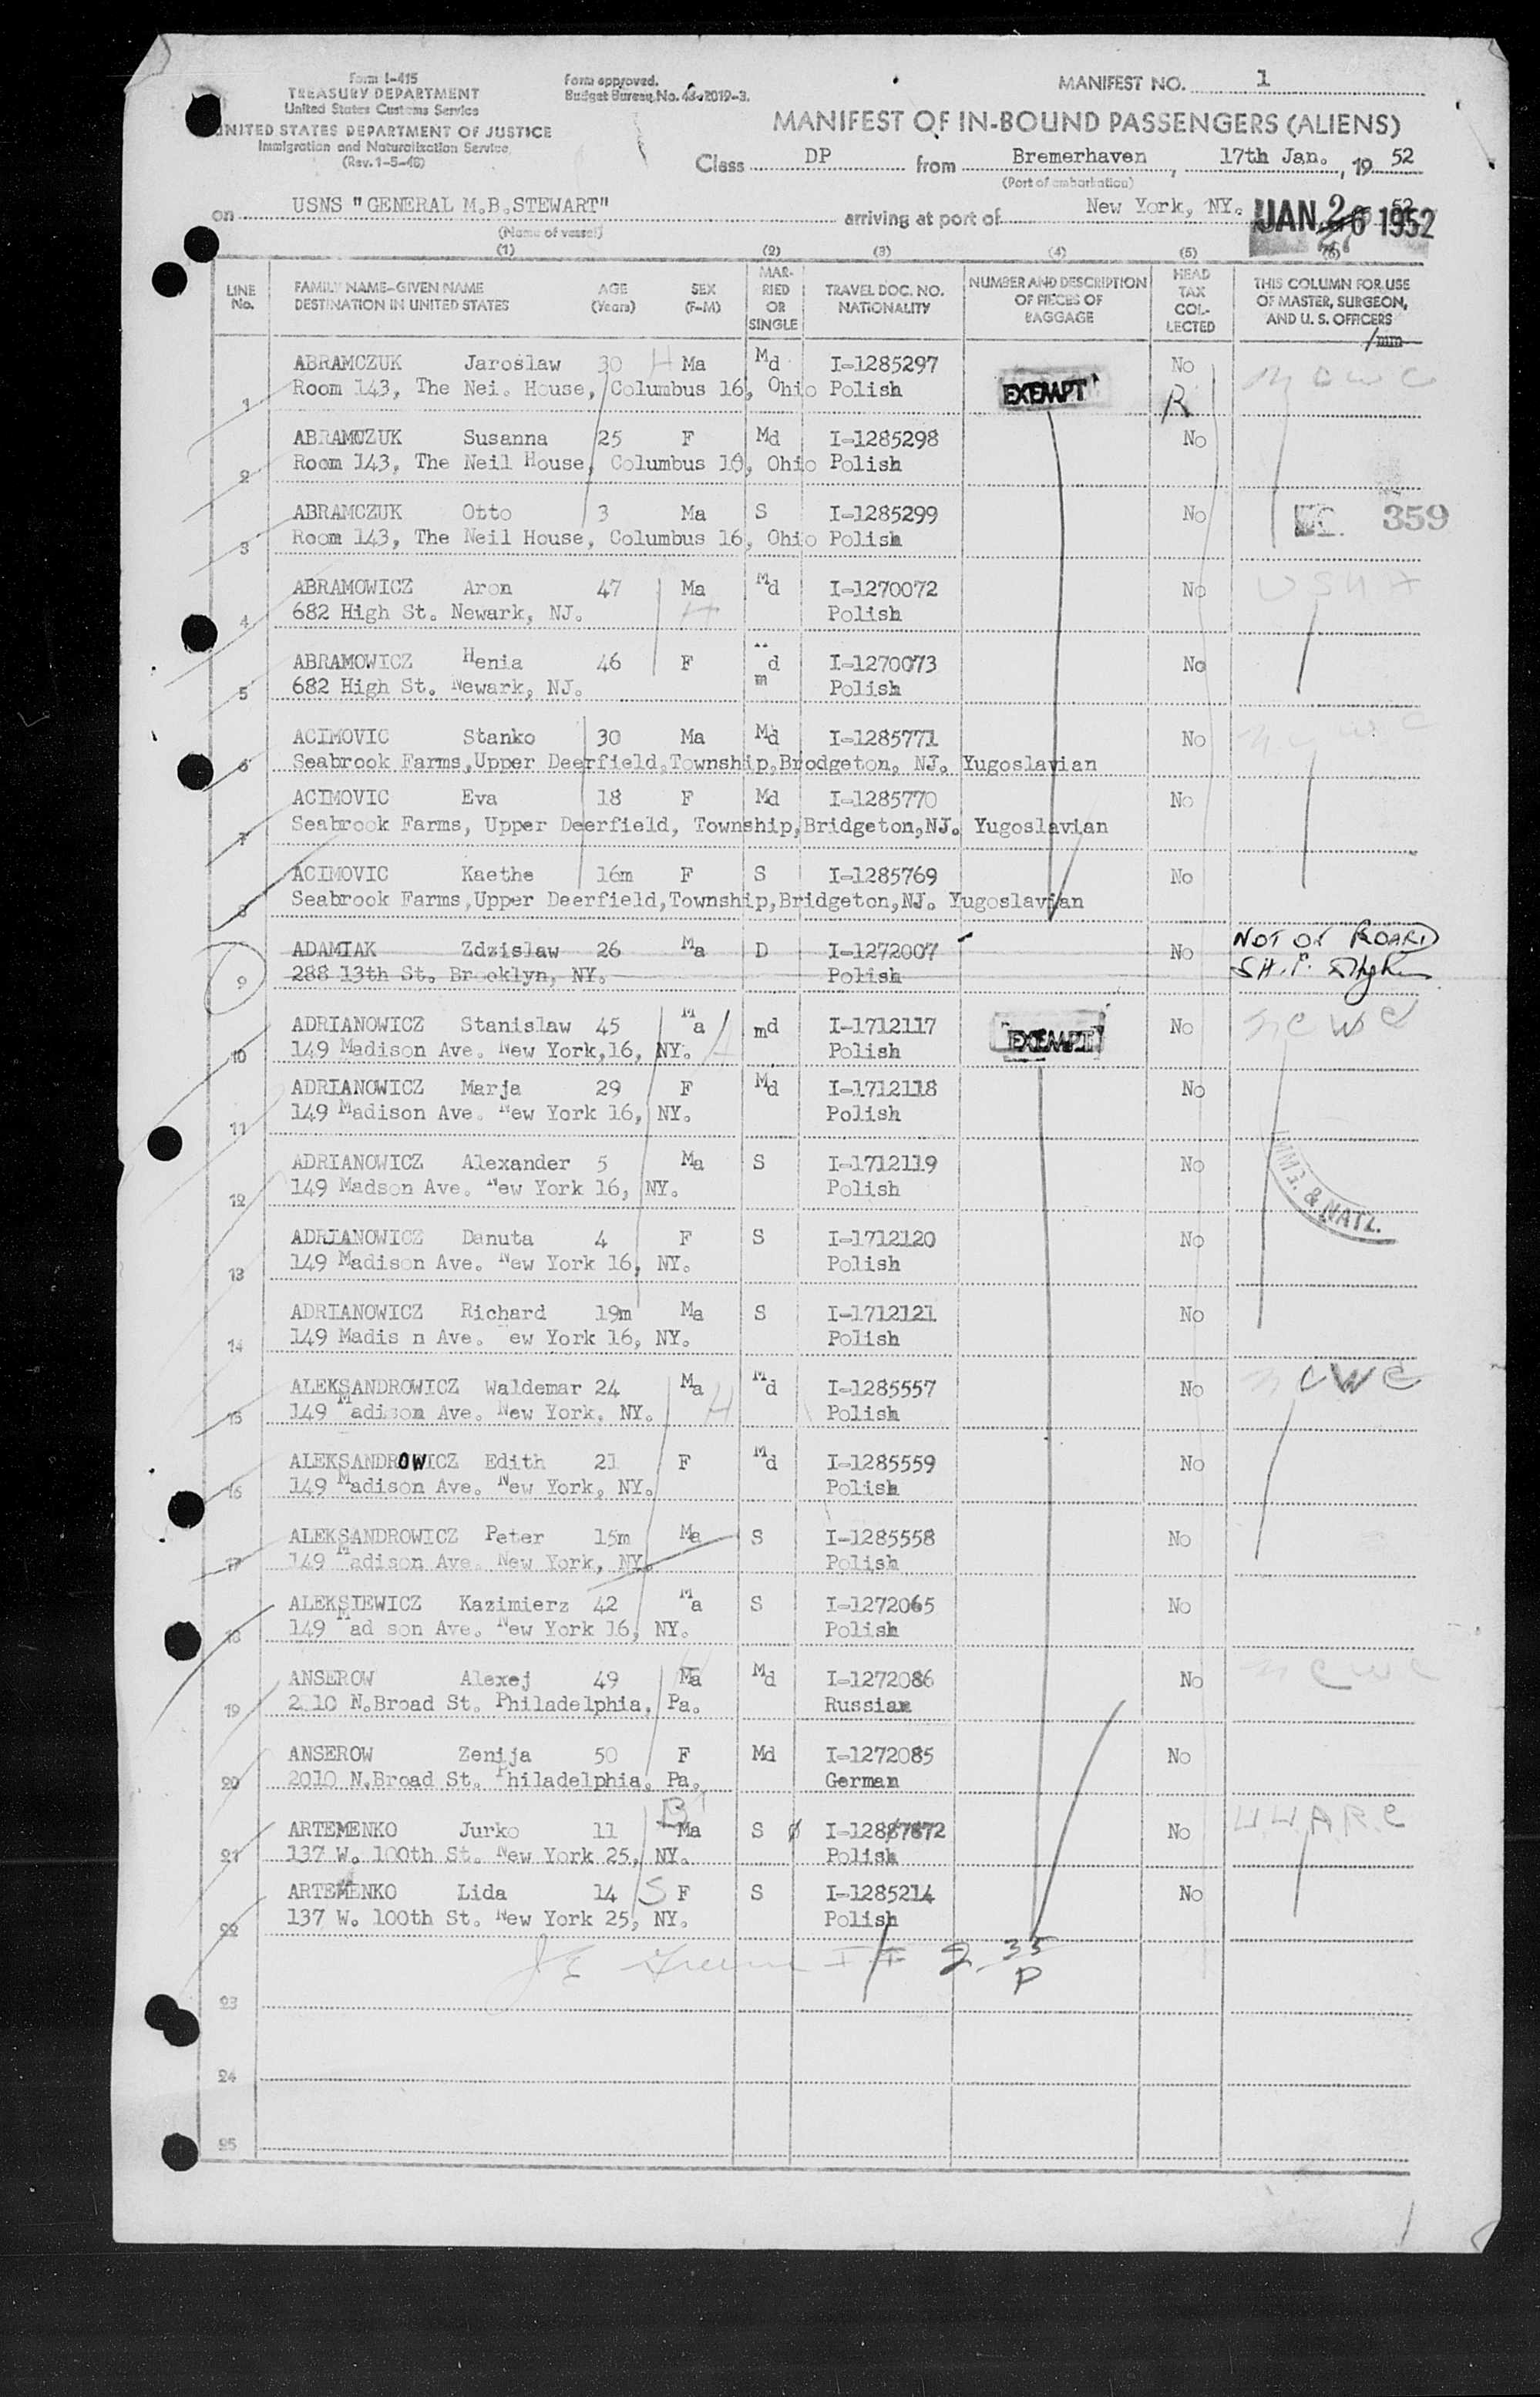 Form I-415
TREASURY DEPARTMENT
United States Customs Service
UNITED STATES DEPARTMENT OF JUSTICE
Immigration and Naturalization Service
(Rev. 1-5-48)
Form approved.
Budget Bureau No. 43-2019-3.
MANIFEST NO. 1
MANIFEST OF IN-BOUND PASSENGERS (ALIENS)
Class DP from Bremerhaven, 17th Jan., 19 52
(Port of embarkation)
on USNS "GENERAL M.B.STEWART" arriving at port of New York, NY. JAN 26 1952 52
(Name of vessel)
(1) (2) (3) (4) (5) (6)
LINE No. FAMILY NAME-GIVEN NAME DESTINATION IN UNITED STATES AGE (Years) SEX (F-M) MAR-RIED OR SINGLE TRAVEL DOC. NO. NATIONALITY NUMBER AND DESCRIPTION OF PIECES OF BAGGAGE HEAD TAX COL-LECTED THIS COLUMN FOR USE OF MASTER, SURGEON, AND U. S. OFFICERS
/mm
ABRAMCZUK Jaroslaw 30 H Ma Md I-1285297 No
1 Room 143, The Nei. House, Columbus 16, Ohio Polish EXEMPT R NCWC
ABRAMCZUK Susanna 25 F Md I-1285298 No
2 Room 143, The Neil House, Columbus 16, Ohio Polish
ABRAMCZUK Otto 3 Ma S I-1285299 No 359
3 Room 143, The Neil House, Columbus 16, Ohio Polish
ABRAMOWICZ Aron 47 Ma Md I-1270072 No USNA
4 682 High St. Newark, NJ. H Polish
ABRAMOWICZ Henia 46 F md I-1270073 No
5 682 High St. Newark, NJ. Polish
ACIMOVIC Stanko 30 Ma Md I-1285771 No NCWC
6 Seabrook Farms,Upper Deerfield,Township,Brodgeton, NJ. Yugoslavian
ACIMOVIC Eva 18 F Md I-1285770 No
7 Seabrook Farms, Upper Deerfield, Township,Bridgeton,NJ. Yugoslavian
ACIMOVIC Kaethe 16m F S I-1285769 No
8 Seabrook Farms,Upper Deerfield,Township,Bridgeton,NJ. Yugoslavian
ADAMIAK Zdzislaw 26 Ma D I-1272007 No NOT ON BOARD
9 288 13th St. Brooklyn, NY. Polish
ADRIANOWICZ Stanislaw 45 Ma md I-1712117 EXEMPT No NCWC
10 149 Madison Ave. New York,16, NY. H Polish
ADRIANOWICZ Marja 29 F Md I-1712118 No
11 149 Madison Ave. New York 16, NY. Polish
ADRIANOWICZ Alexander 5 Ma S I-1712119 No
12 149 Madson Ave. New York 16, NY. Polish IMMI. & NATZ.
ADRIANOWICZ Danuta 4 F S I-1712120 No
13 149 Madison Ave. New York 16, NY. Polish
ADRIANOWICZ Richard 19m Ma S I-1712121 No
14 149 Madis n Ave. ew York 16, NY. Polish
ALEKSANDROWICZ Waldemar 24 Ma Md I-1285557 No NCWC
15 149 Madison Ave. New York. NY. H Polish
ALEKSANDROWICZ Edith 21 F Md I-1285559 No
16 149 Madison Ave. New York, NY. Polish
ALEKSANDROWICZ Peter 15m Ma S I-1285558 No
17 149 Madison Ave. New York, NY. Polish
ALEKSIEWICZ Kazimierz 42 Ma S I-1272065 No
18 149 Mad son Ave. New York 16, NY. Polish
ANSEROW Alexej 49 Ma Md I-1272086 No NCWC
19 2.10 N.Broad St. Philadelphia, Pa. Russian
ANSEROW Zenija 50 F Md I-1272085 No
20 2010 N.Broad St. Philadelphia. Pa. German
B
ARTEMENKO Jurko 11 Ma S I-1287872 No U.U.A.R.C
21 137 W. 100th St. New York 25, NY. Polish
ARTEMENKO Lida 14 S F S I-1285214 No
22 137 W. 100th St. New York 25, NY. Polish
2 35 P
23
24
25